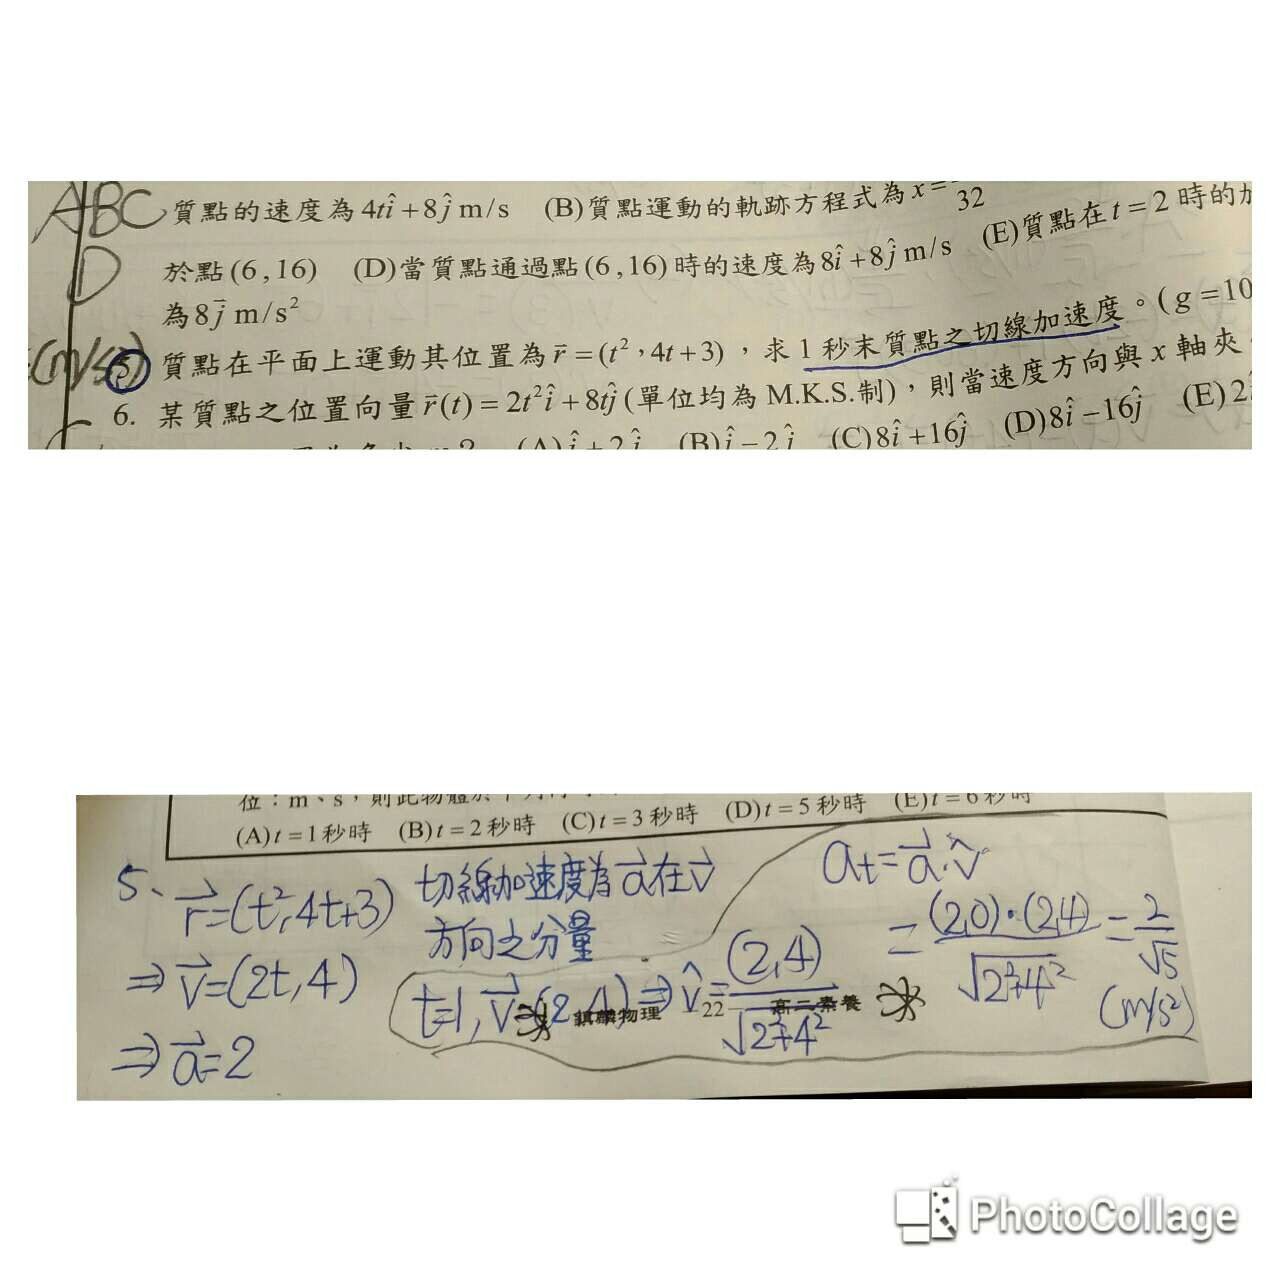 ABC
D
質點的速度為4tî+8ĵ m/s (B)質點運動的軌跡方程式為x=
32
於點(6,16) (D)當質點通過點(6,16)時的速度為8î+8ĵ m/s (E)質點在t=2時的加
為8j̄ m/s²
(m/s²)
5 質點在平面上運動其位置為r̄=(t²,4t+3),求1秒末質點之切線加速度。(g=10
6. 某質點之位置向量r̄(t)=2t²î+8tĵ(單位均為M.K.S.制),則當速度方向與x軸夾
(A)î+2ĵ (B)î−2ĵ (C)8î+16ĵ (D)8î−16ĵ (E)2
位:m、s,則此物體於
(A)t=1秒時 (B)t=2秒時 (C)t=3秒時 (D)t=5秒時 (E)t=6秒時
5、r⃗=(t²,4t+3)
⇒v⃗=(2t,4)
⇒a⃗=2
切線加速度為a⃗在v⃗
方向之分量
t=1,v⃗=(2,4)⇒v̂=(2,4)/√2²+4²
at=a⃗·v̂
=(2,0)·(2,4)/√2²+4²=2/√5
(m/s²)
鎮麟物理 22 高二素養
PhotoCollage